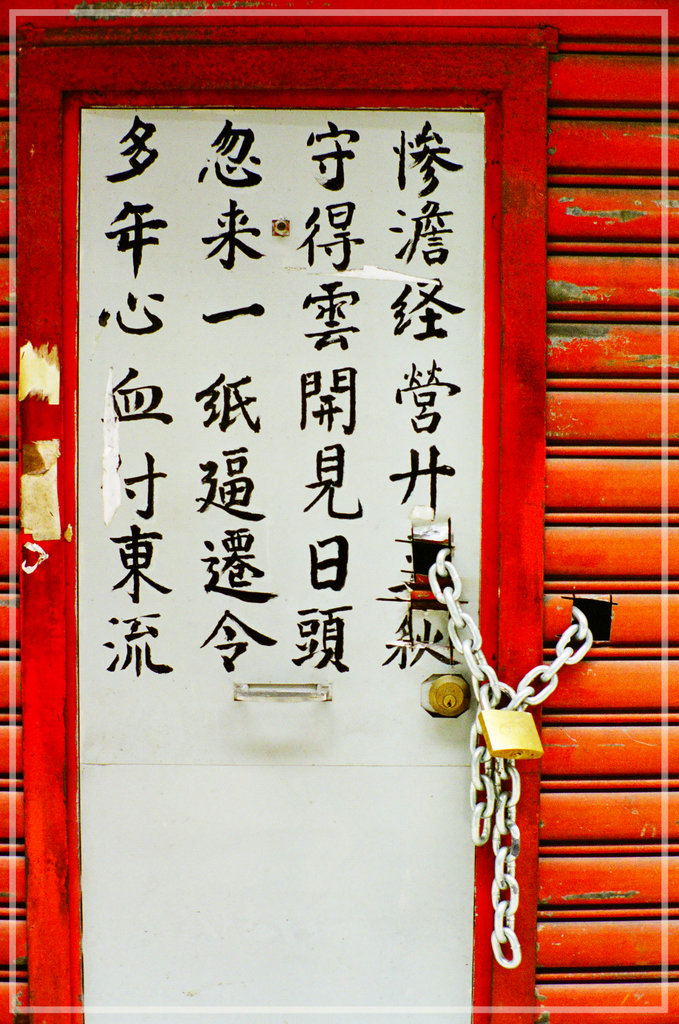 慘澹経營廾秋
守得雲開見日頭
忽来一纸逼遷令
多年心血付東流